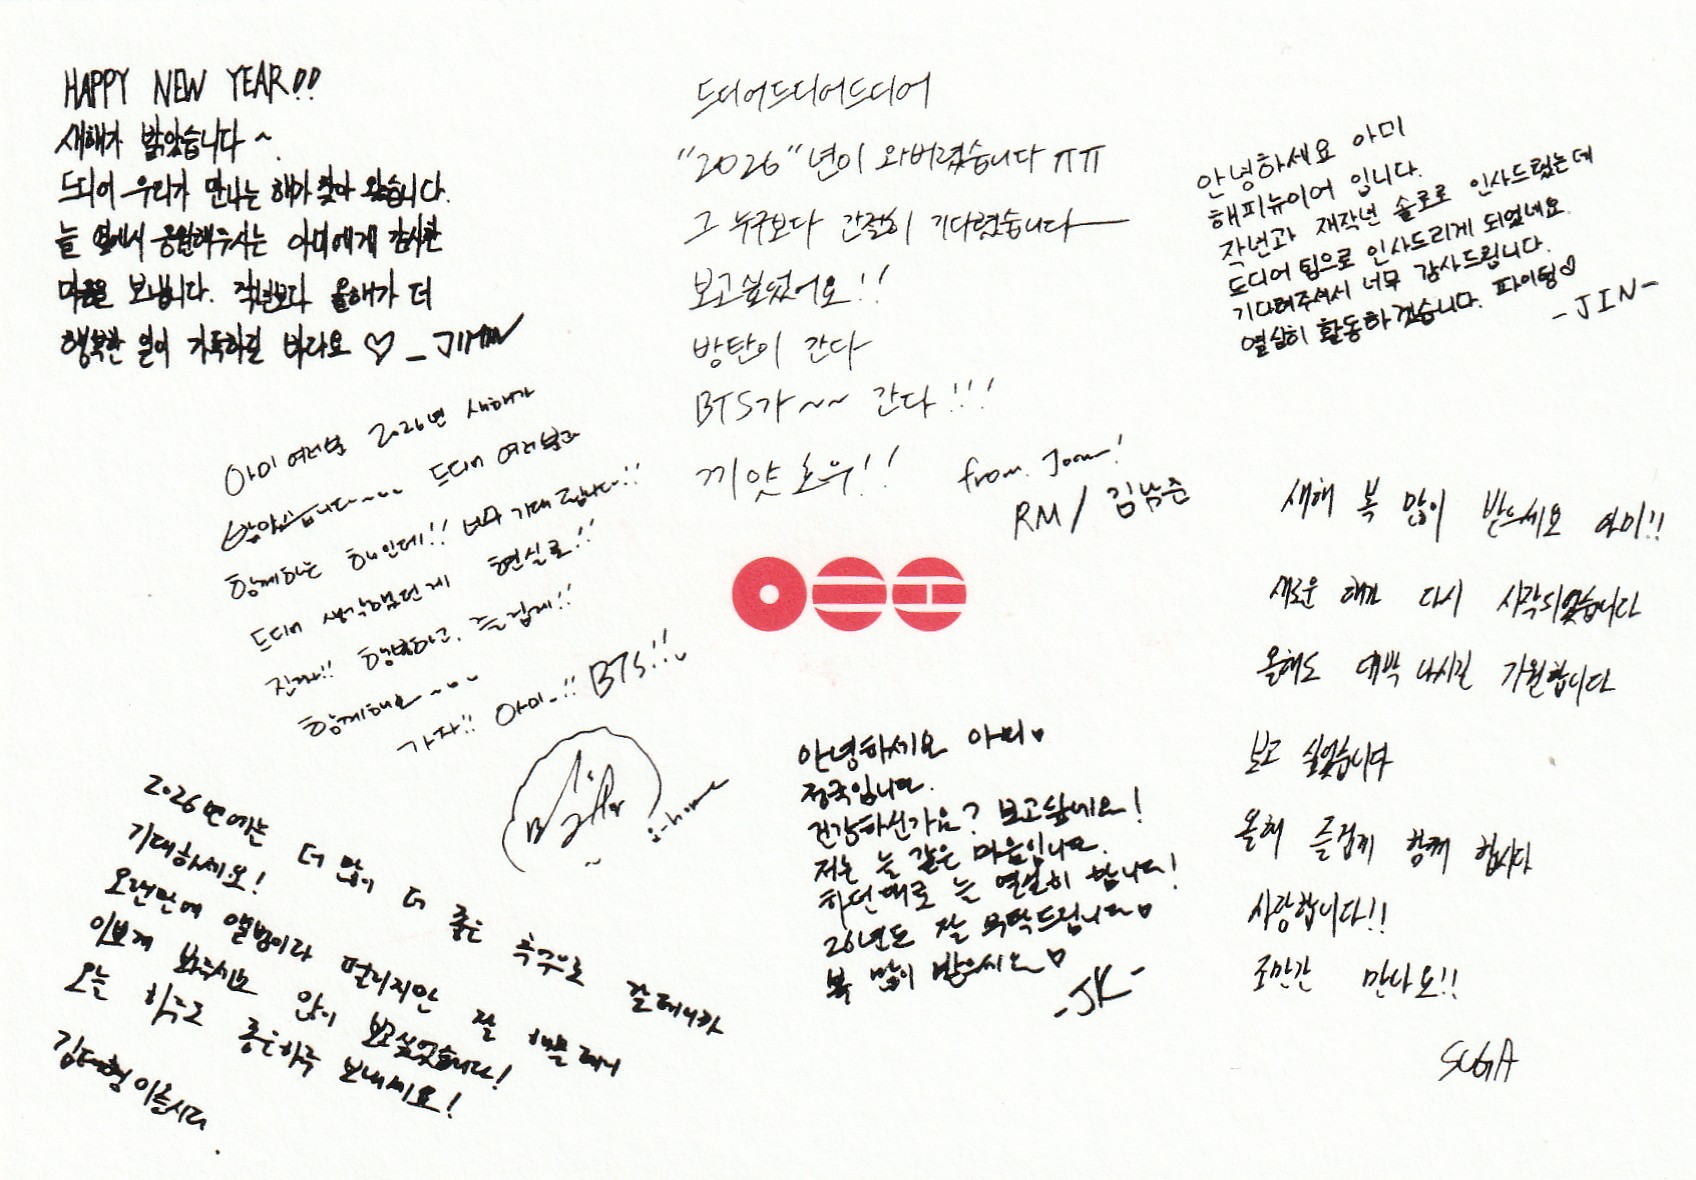 HAPPY NEW YEAR!!
새해가 밝았습니다~
드디어 우리가 만나는 해가 찾아 왔습니다.
늘 옆에서 응원해주시는 아미에게 감사한
마음을 보냅니다. 작년보다 올해가 더
행복한 일이 가득하길 바라요 ♡ _JIMIN
드디어드디어드디어
"2026"년이 와버렸습니다 ㅠㅠ
그 누구보다 간절히 기다렸습니다
보고싶었어요!!
방탄이 간다
BTS가~~ 간다!!!
끼얏호우!!
from. Joon!
RM / 김남준
안녕하세요 아미
해피뉴이어 입니다.
작년과 재작년 솔로로 인사드렸는데
드디어 팀으로 인사드리게 되었네요.
기다려주셔서 너무 감사드립니다.
열심히 활동하겠습니다. 파이팅♡
-JIN-
아미 여러분 2026년 새해가
밝았습니다~~ 드디어 여러분과
함께하는 해인데!! 너무 기대됩니다!!
드디어 생각했던게 현실로!!
진짜!! 행복하고, 즐겁게!!
함께해요~~
가자!! 아미!! BTS!!
j-hope
새해 복 많이 받으세요 아미!!
새로운 해가 다시 시작되었습니다
올해도 대박 나시길 기원합니다
보고 싶었습니다
올해 즐겁게 함께 합시다
사랑합니다!!
조만간 만나요!!
SUGA
안녕하세요 아미♥
정국입니다.
건강하신가요? 보고싶네요!
저는 늘 같은 마음입니다.
하던대로 늘 열심히 합니다!
26년도 잘 부탁드립니다♥
복 많이 받으세요♥
-JK-
2026년에는 더 많이 더 좋은 추억으로 갈테니까
기대하세요!
오랜만에 앨범이라 떨리지만 잘 해볼테니
이쁘게 봐주시고 많이 보고싶었습니다!
오늘 하루도 좋은하루 보내세요!
김태형 이올시다.